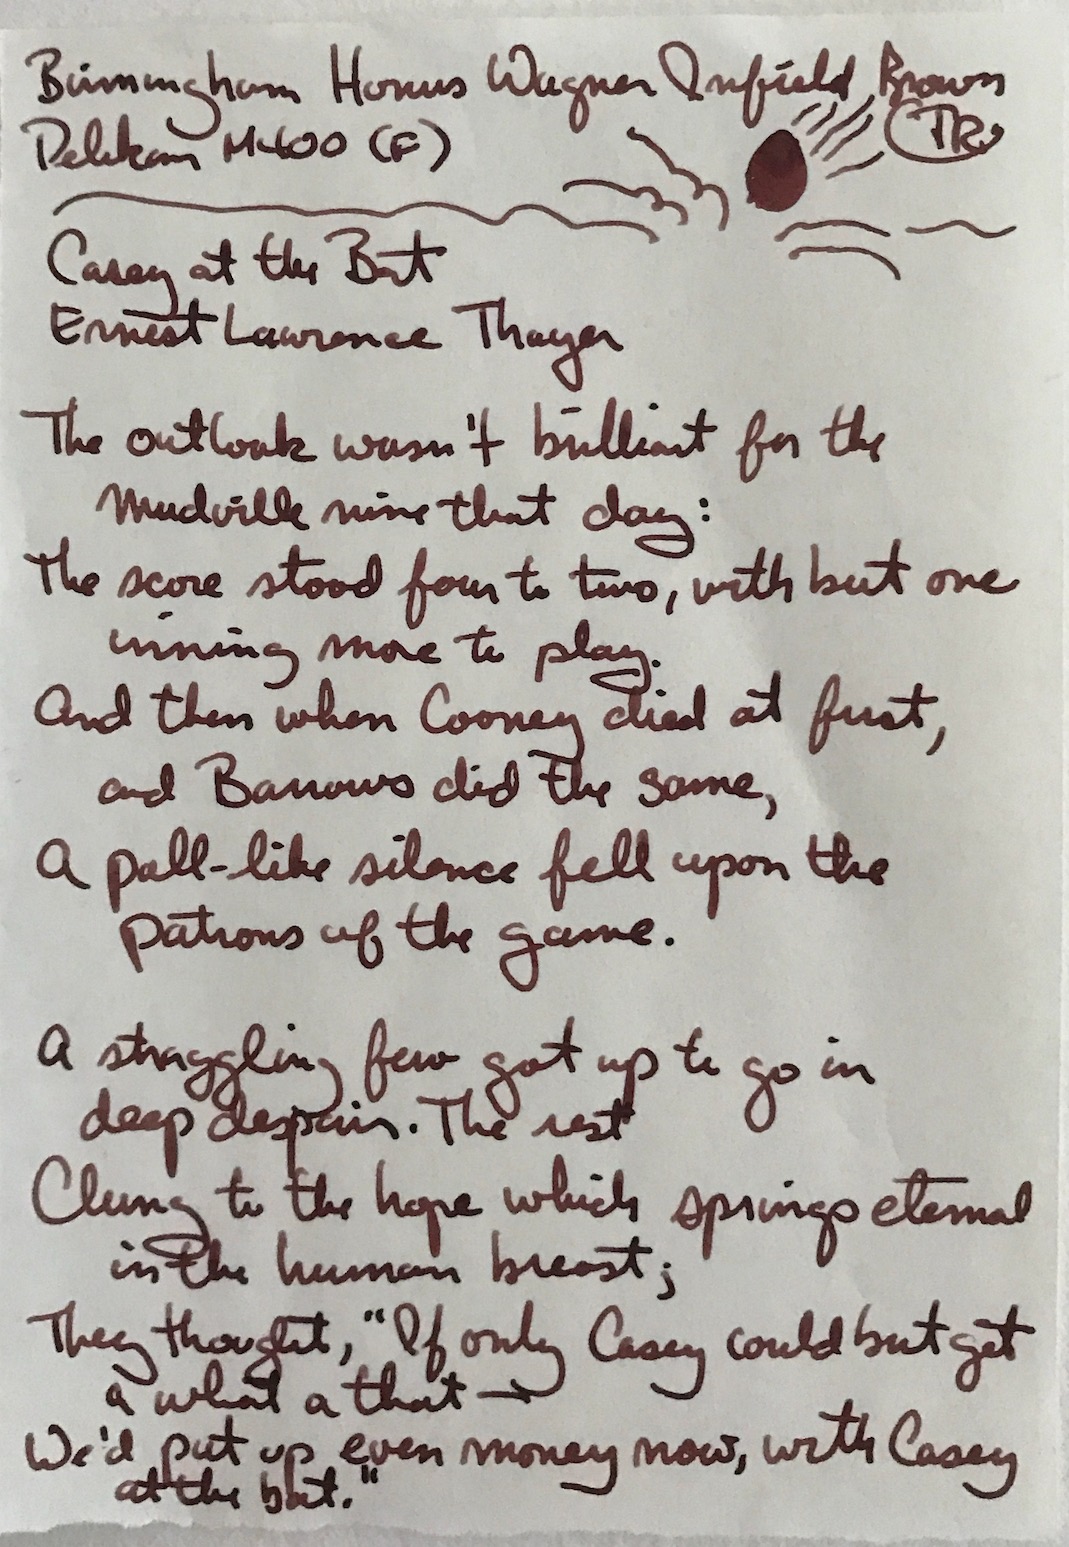 Birmingham Honus Wagner Infield Brown
Pelikan M400 (F)
TR
Casey at the Bat
Ernest Lawrence Thayer
The outlook wasn't brilliant for the
Mudville nine that day:
The score stood four to two, with but one
inning more to play.
And then when Cooney died at first,
and Barrows did the same,
A pall-like silence fell upon the
patrons of the game.
A straggling few got up to go in
deep despair. The rest
Clung to the hope which springs eternal
in the human breast;
They thought, "If only Casey could but get
a what a that —
We'd put up even money now, with Casey
at the bat."